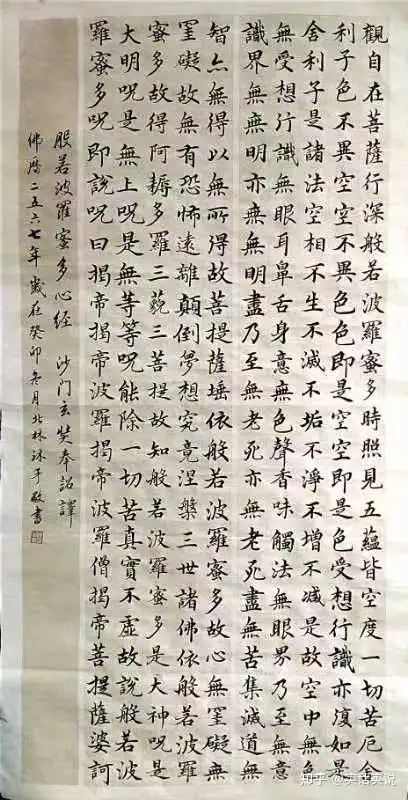 觀自在菩薩行深般若波羅蜜多時照見五蘊皆空度一切苦厄舍
利子色不異空空不異色色即是空空即是色受想行識亦復如是
舍利子是諸法空相不生不滅不垢不淨不增不減是故空中無色
無受想行識無眼耳鼻舌身意無色聲香味觸法無眼界乃至無意
識界無無明亦無無明盡乃至無老死亦無老死盡無苦集滅道無
智亦無得以無所得故菩提薩埵依般若波羅蜜多故心無罣礙無
罣礙故無有恐怖遠離顛倒夢想究竟涅槃三世諸佛依般若波羅
蜜多故得阿耨多羅三藐三菩提故知般若波羅蜜多是大神咒是
大明咒是無上咒是無等等咒能除一切苦真實不虛故說般若波
羅蜜多咒即說咒曰揭帝揭帝波羅揭帝波羅僧揭帝菩提薩婆訶
般若波羅蜜多心經 沙门玄奘奉詔譯
佛曆二五六七年歲在癸卯冬月北林沐于敬書
知乎